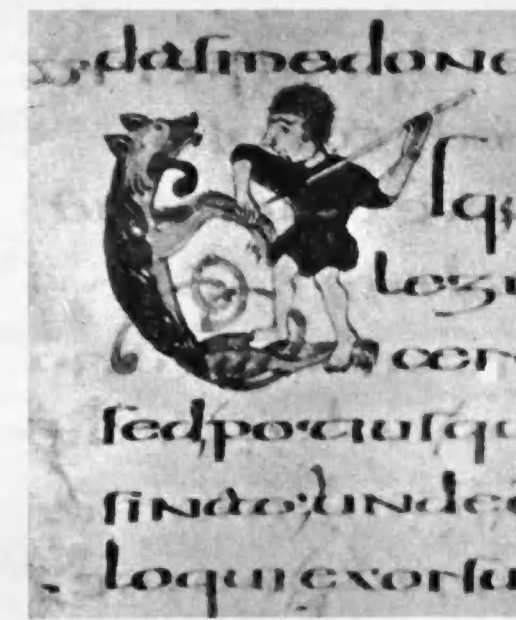 dasmedono
usq;
legi
cer
sed,pociusqu
sindo;unde
loquiexorsu